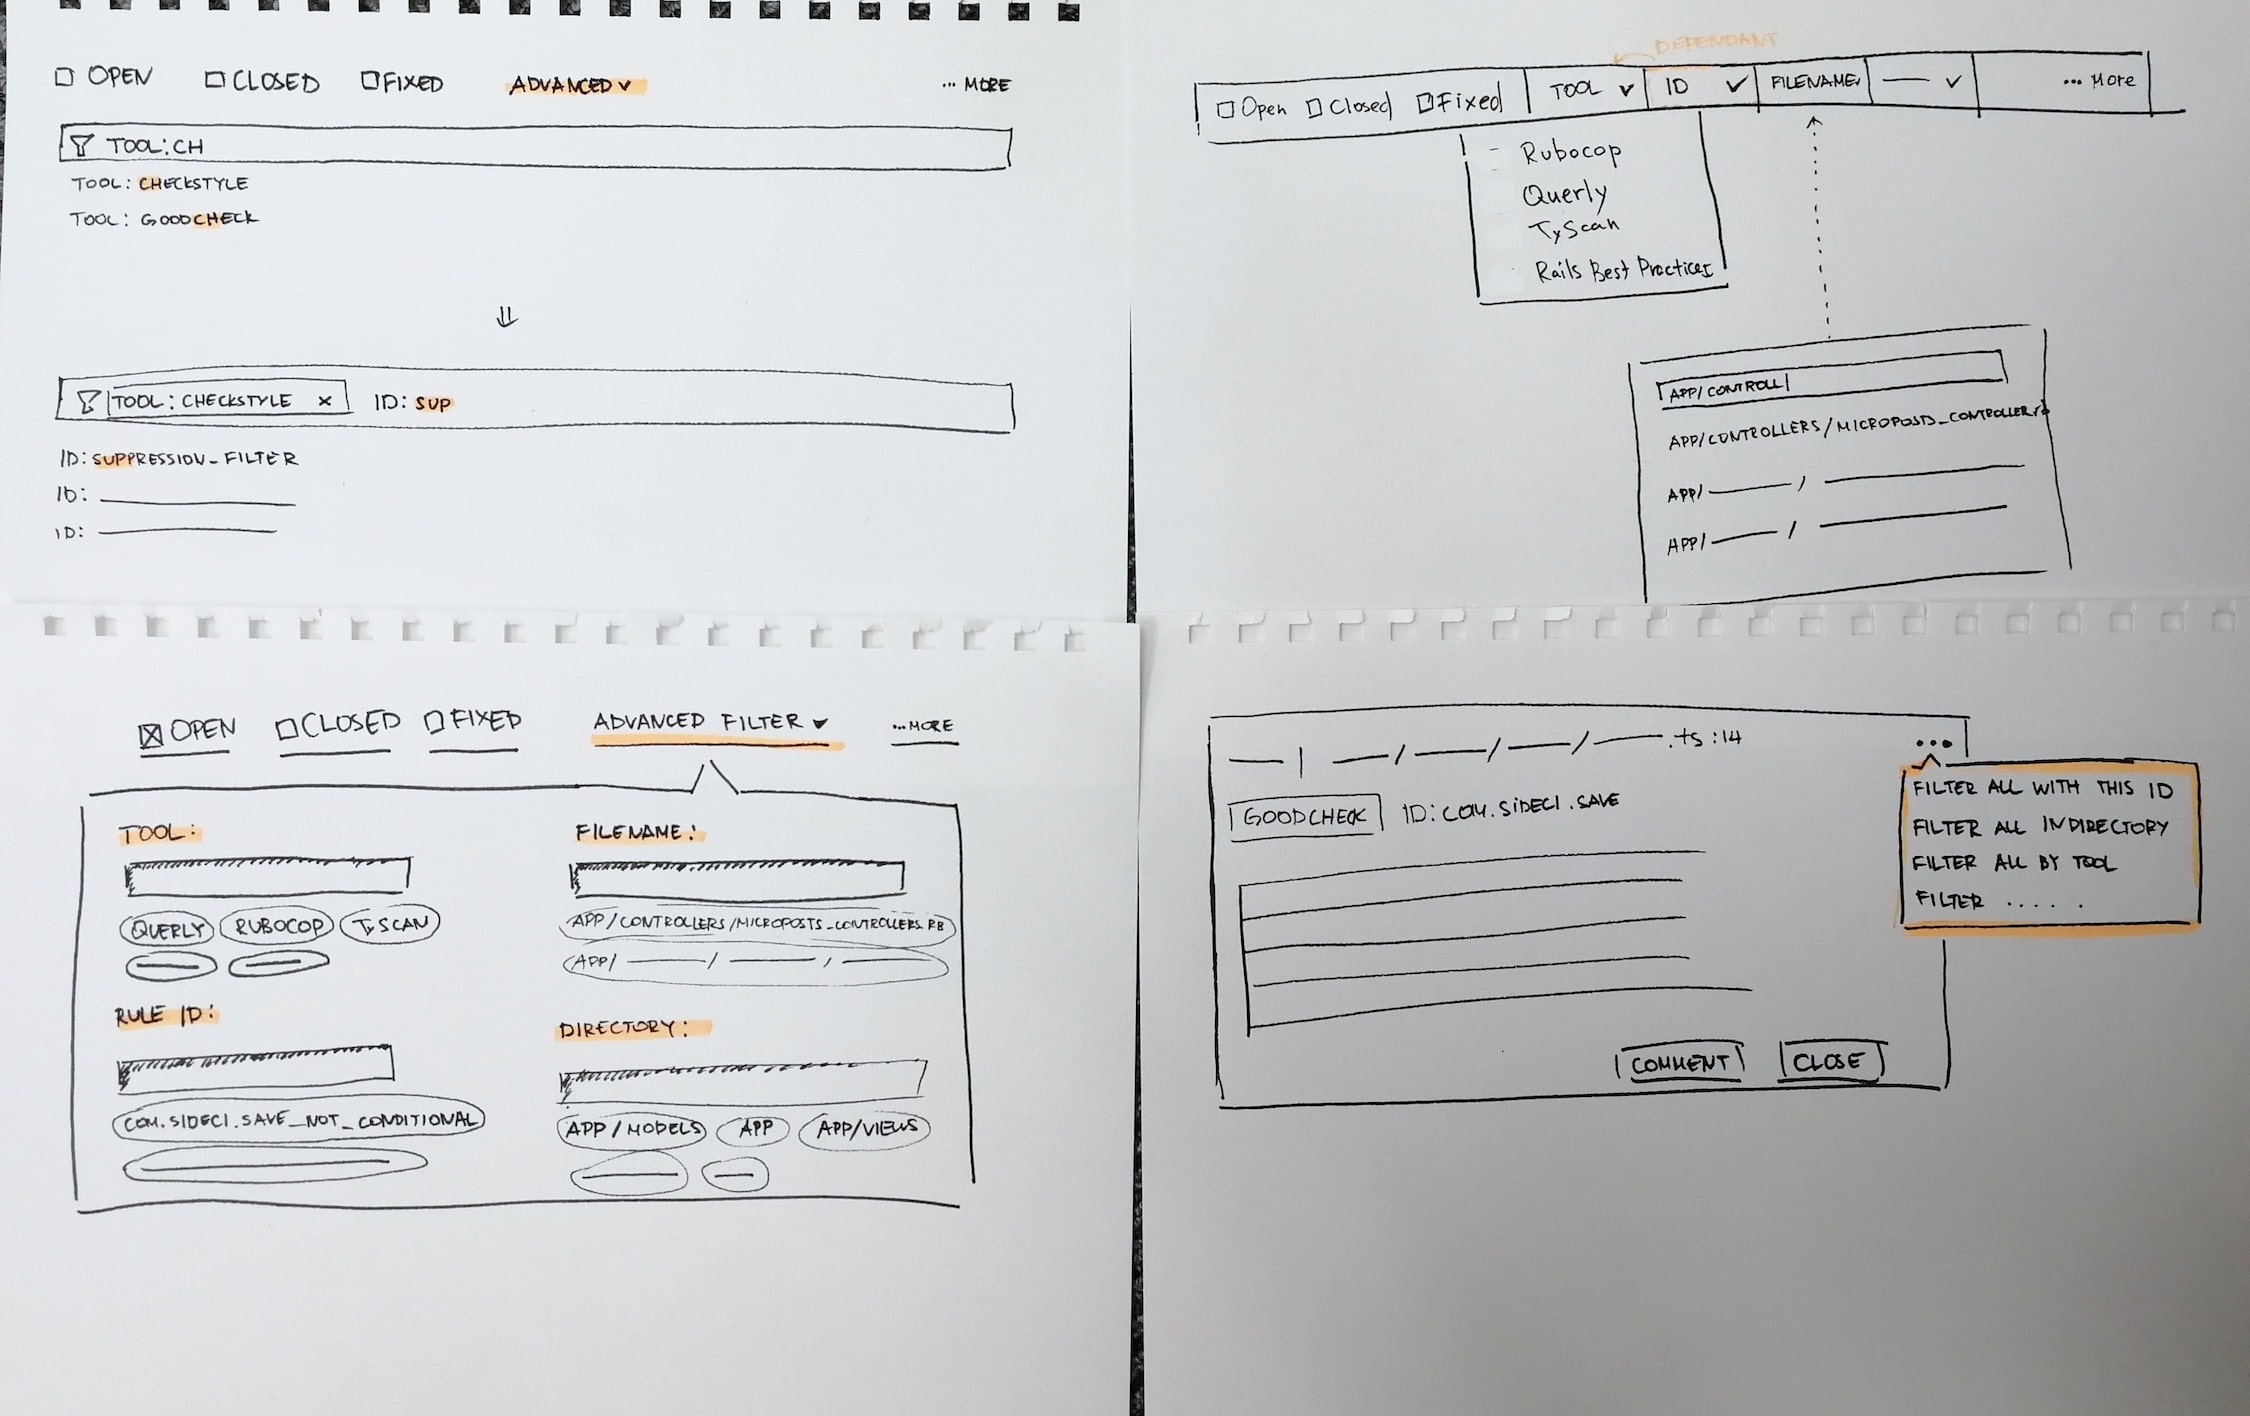 OPEN CLOSED FIXED ADVANCED ... MORE
TOOL:CH
TOOL: CHECKSTYLE
TOOL: GOODCHECK
TOOL: CHECKSTYLE × ID: SUP
ID: SUPPRESSION_FILTER
ID:
ID:
DEPENDANT
Open Closed Fixed TOOL ID FILENAME ... More
Rubocop
Querly
TyScan
Rails Best Practices
APP/CONTROLL|
APP/CONTROLLERS/MICROPOSTS_CONTROLLER.rb
APP/ /
APP/ /
OPEN CLOSED FIXED ADVANCED FILTER ...MORE
TOOL:
QUERLY RUBOCOP TySCAN
FILENAME:
APP/CONTROLLERS/MICROPOSTS_CONTROLLERS.RB
APP/ / /
RULE ID:
COM.SIDECI.SAVE_NOT_CONDITIONAL
DIRECTORY:
APP/MODELS APP APP/VIEWS
| / / / .ts:14 ...
GOODCHECK ID: COM.SIDECI.SAVE
FILTER ALL WITH THIS ID
FILTER ALL IN DIRECTORY
FILTER ALL BY TOOL
FILTER .....
COMMENT CLOSE